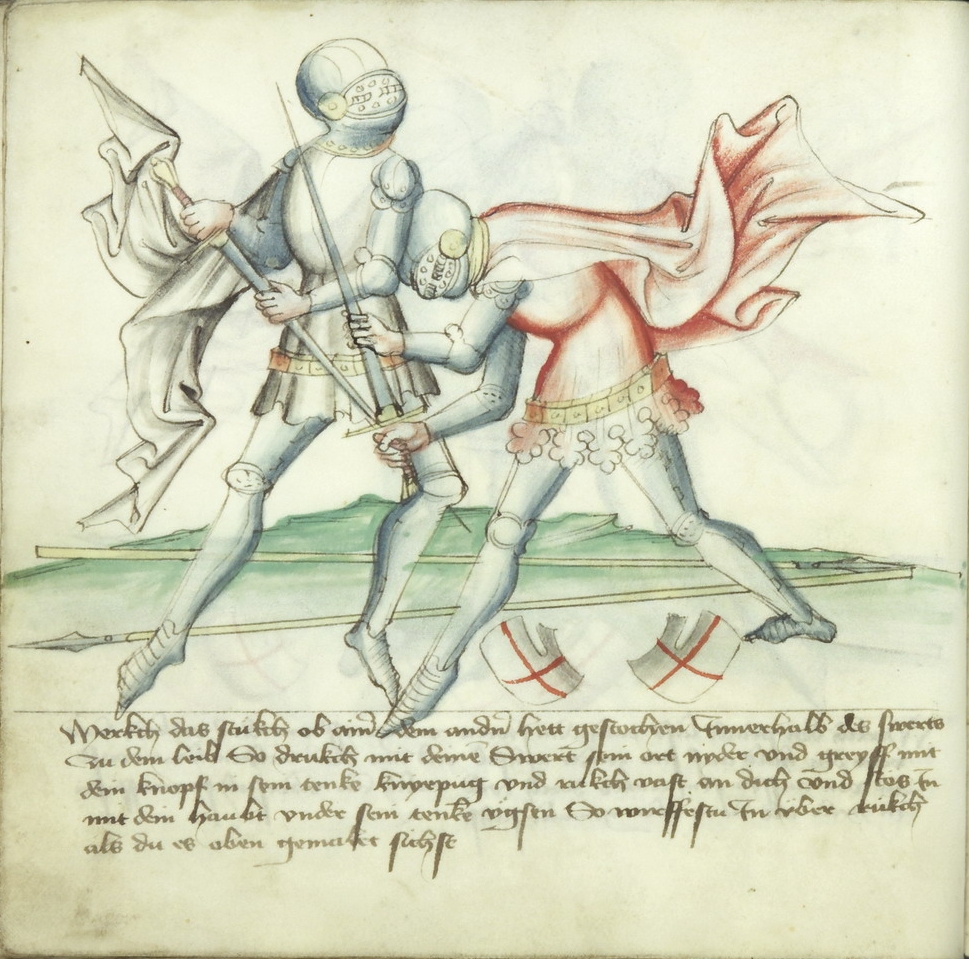 Merkch das stukch ob ainer dem andern hett gestochen Innerhalb des swerts
zu dem leib So drukch mit deinē Swert sein ort nyder vnd greyff mit
dem knopf in sein tenke knyepug vnd rukch vast an dich vnd stos In
mit dem haubt vnder sein tenke vgsen So wurffestu In vber rukch
als du es oben gemalet sichst